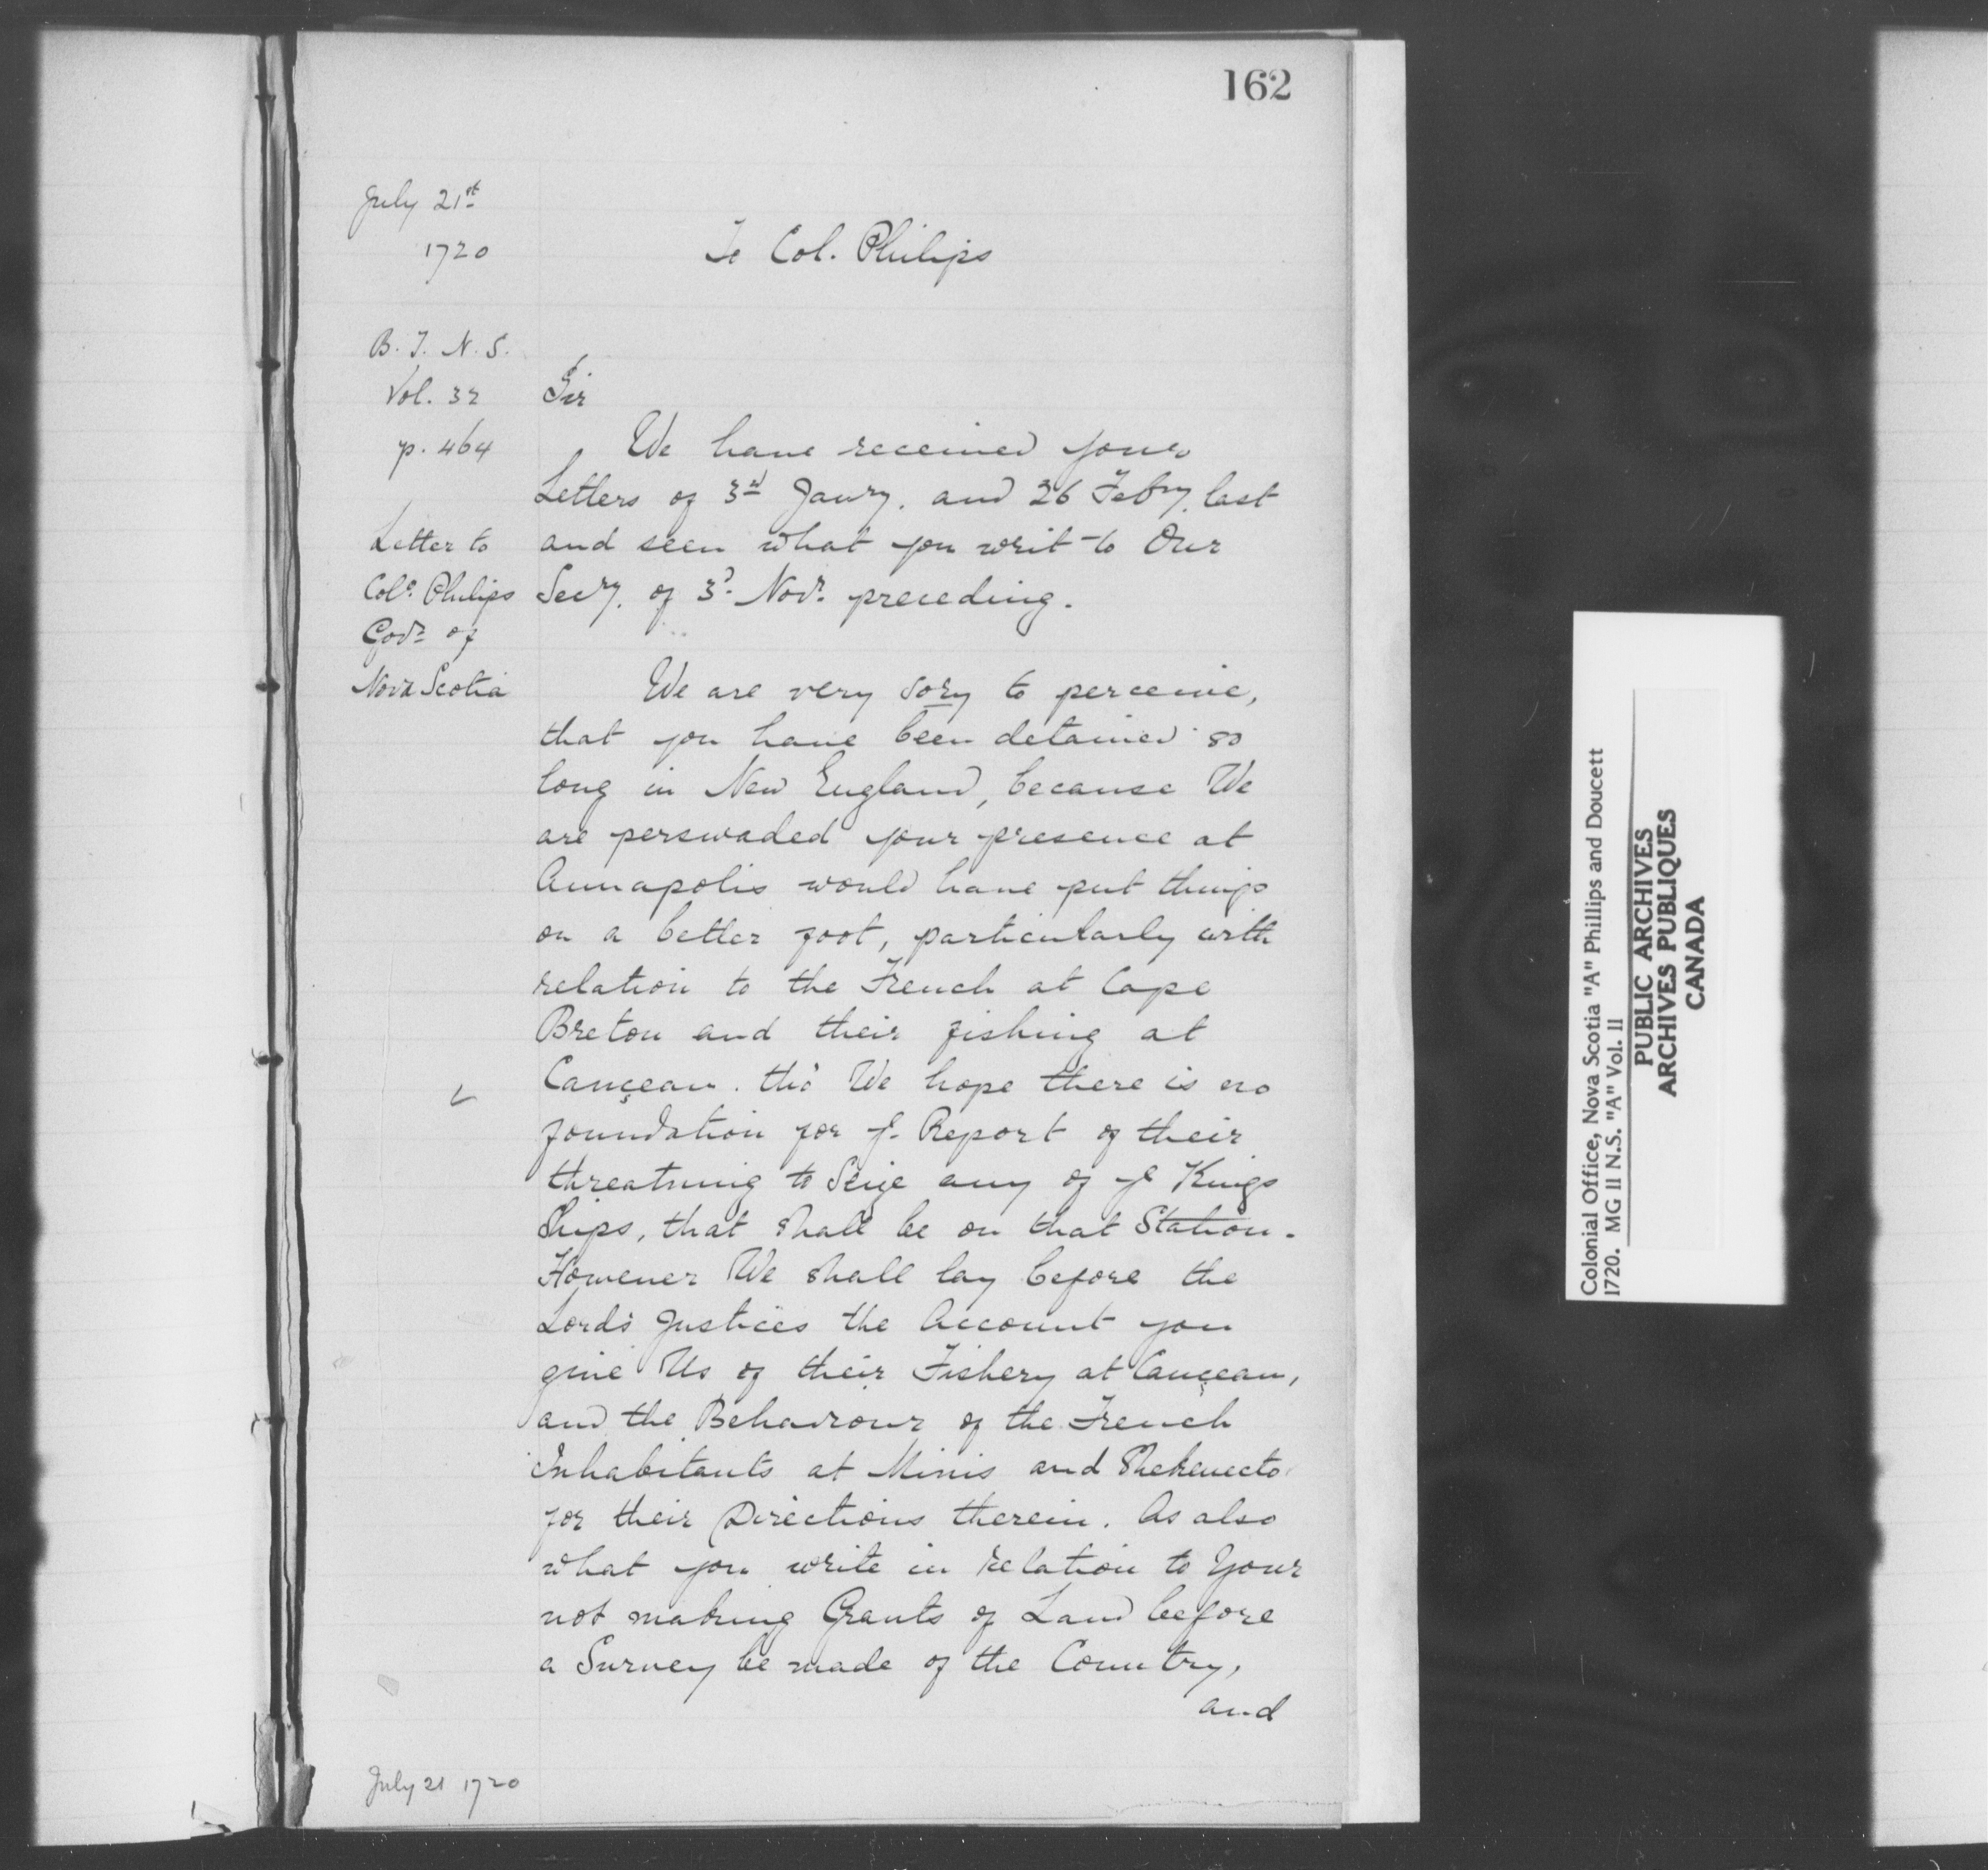 162
July 21st
1720
To Col. Philips
B. T. N. S.
Vol. 32
p. 464
Letter to
Colo. Philips
Govr. of
Nova Scotia
Sir
We have received your
Letters of 3d Janry. and 26 Febry. last
and seen what you writ to Our
Secry. of 3d. Novr. preceding.
We are very sory to perceive,
that you have been detained so
long in New England, because We
are perswaded your presence at
Annapolis would have put things
on a better foot, particularly with
relation to the French at Cape
Breton and their fishing at
Cançeau. tho' We hope there is no
foundation for ye. Report of their
threatning to Seize any of ye Kings
Ships, that shall be on that Station.
However We shall lay before the
Lords Justices the Account you
give Us of their Fishery at Cançeau,
and the Behaviour of the French
Inhabitants at Minis and Shekenecto
for their Directions therein. As also
what you write in relation to Your
not making Grants of Land before
a Survey be made of the Country,
and
July 21 1720
Colonial Office, Nova Scotia "A" Phillips and Doucett
1720. MG 11 N.S. "A" Vol. 11
PUBLIC ARCHIVES
ARCHIVES PUBLIQUES
CANADA